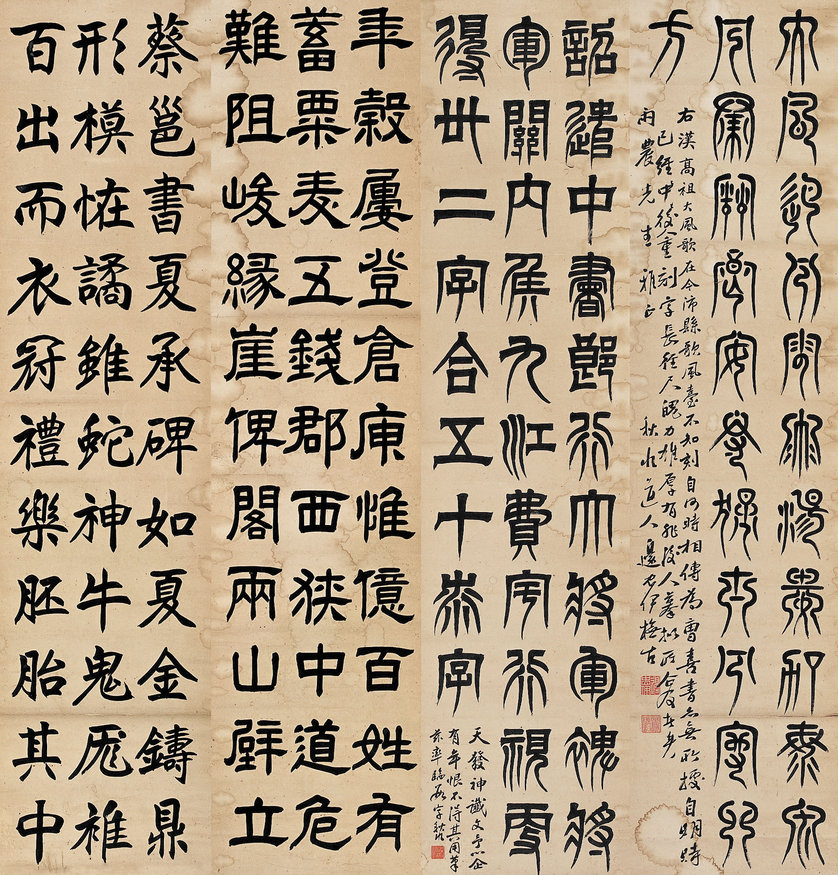 大風起兮雲飛揚威加海内
兮歸故鄉安得猛士兮守四
方
右漢高祖大風歌在今沛縣歌風臺不知刻自何時相傳為曹喜書亦無所據自明時
已經中後重刻字長徑尺魄力雄厚有非後人摹
雨農先生雅正 秋水道人邊
詔遣中書郎行大將軍裨將
軍關内侯九江費宇行視更
得丗二字合五十柒字
天發神讖文予心企
有年恨不得其用筆
茲率臨數字秋水
年穀屢登倉庾惟億百姓有
蓄粟麦五錢郡西狹中道危
難阻峻緣崖俾閣兩山壁立
蔡邕書夏承碑如夏金鑄鼎
形模怪譎雖蛇神牛鬼厖雜
百出而衣冠禮樂胚胎其中